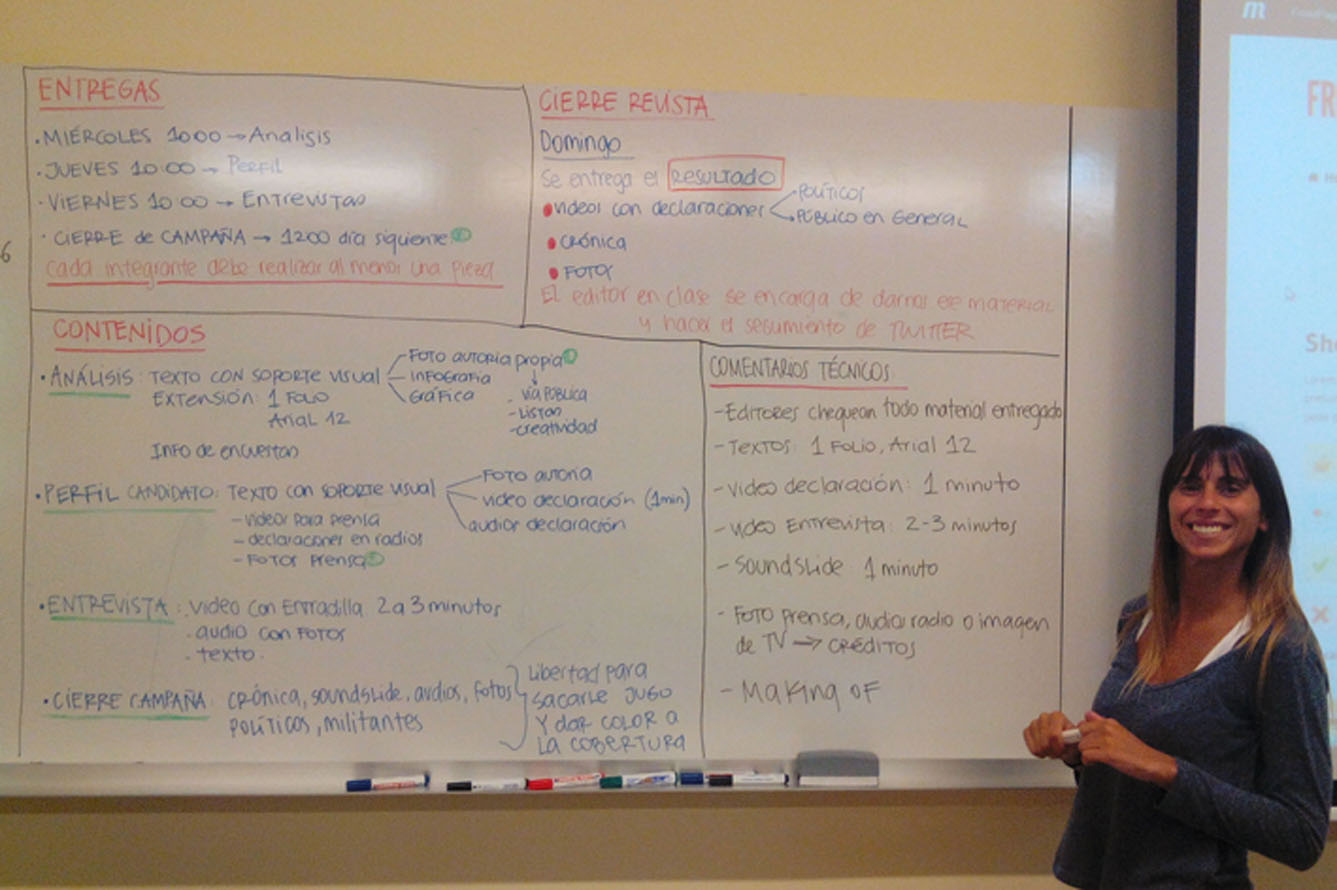 ENTREGAS
• MIÉRCOLES 10:00 → Analisis
• JUEVES 10:00 → PERFIL
• VIERNES 10:00 → ENTREVISTAS
• CIERRE de CAMPAÑA → 12:00 día siguiente
Cada integrante debe realizar al menos una pieza
CIERRE REVISTA
Domingo
Se entrega el RESULTADO
• videos con declaraciones
POLÍTICOS
PÚBLICO en GENERAL
• CRÓNICA
• FOTOS
El editor en clase se encarga de darnos ese MATERIAL
y hacer el seguimiento de TWITTER
CONTENIDOS
• ANÁLISIS: TEXTO CON SOPORTE VISUAL
FOTO AUTORIA propia
INFOGRAFIA
GRÁFICA
- VÍA PÚBLICA
- LISTAS
- creatividad
EXTENSIÓN: 1 FOLIO
ARIAL 12
INFO de encuestas
• PERFIL CANDIDATO: TEXTO con SOPORTE VISUAL
FOTO autoría
video declaración (1min)
audios declaración
- videos para prensa
- declaraciones en radios
- FOTOS PRENSA
• ENTREVISTA: video con Entradilla 2 a 3 minutos
- audio con FOTOS
- TEXTO.
• CIERRE CAMPAÑA: crónica, soundslide, audios, fotos
POLÍTICOS, militantes
Libertad para
sacarle JUGO
Y dar COLOR a
LA COBERTURA
COMENTARIOS TÉCNICOS:
- EDITORES chequean todo material entregado
- TEXTOS: 1 FOLIO, Arial 12
- video declaración: 1 minuto
- video ENTREVISTA: 2-3 minutos
- SOUNDSLIDE 1 minuto
- FOTO prensa, audio radio o imagen
de TV → CRÉDITOS
- MAKING OF
6
m
FR
Sh